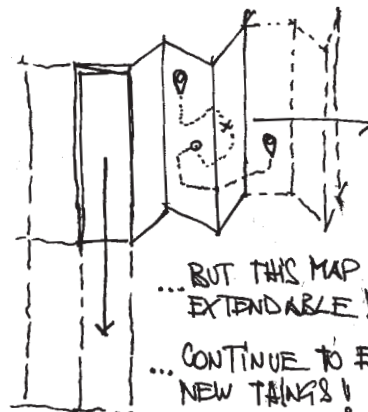 ...BUT THIS MAP
EXTENDABLE!
...CONTINUE TO E
NEW THINGS!